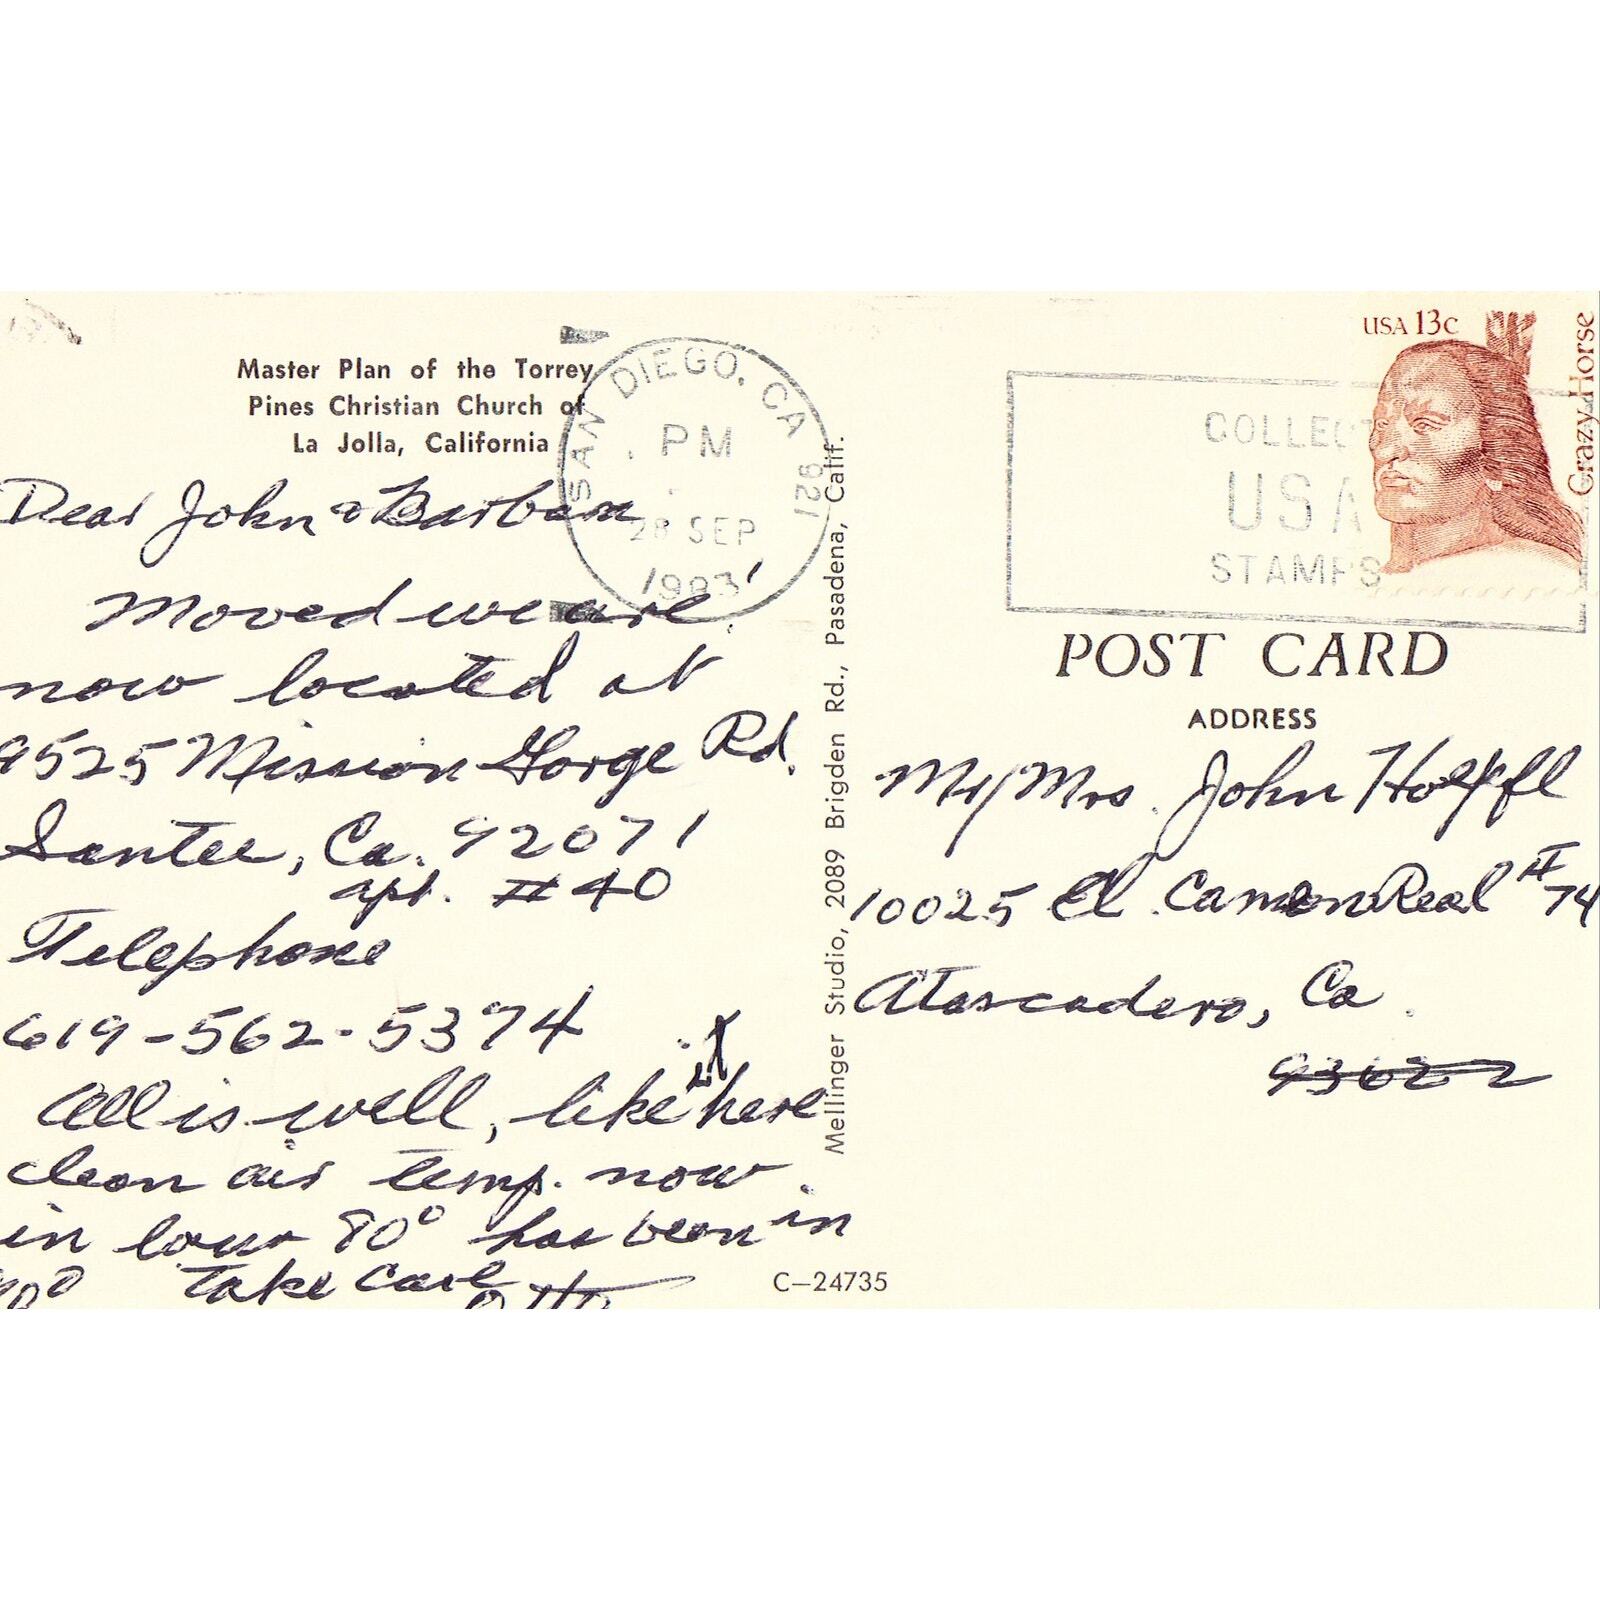 Master Plan of the Torrey
Pines Christian Church of
La Jolla, California
SAN DIEGO, CA
921
PM
28 SEP
1983
Dear John & Barbara
Moved we are.
now located at
9525 Mission Gorge Rd.
Santee, Ca. 92071
apt. #40
Telephone
619-562-5374
All is well, like it here
clean air temp. now
in lower 80° has been in
Take Care
Otto
Mellinger Studio, 2089 Brigden Rd., Pasadena, Calif.
C-24735
COLLECT
USA
STAMPS
USA 13c
Crazy Horse
POST CARD
ADDRESS
Mr/Mrs. John
10025 El Camino Real #74
Atascadero, Ca
93622